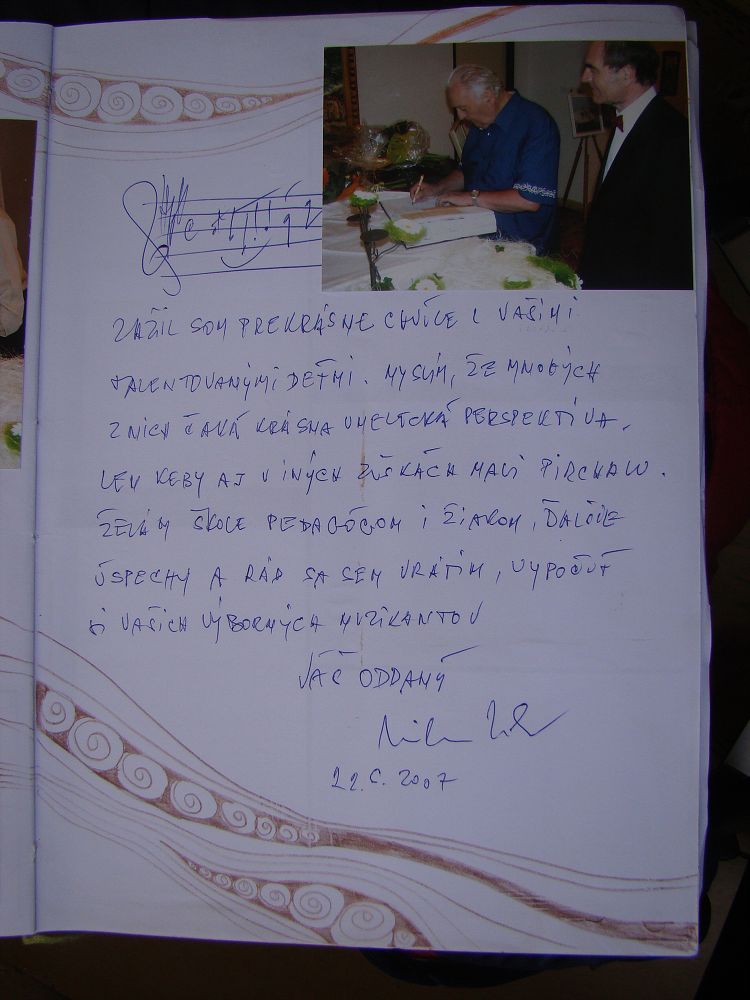 ZAŽIL SOM PREKRÁSNE CHVÍLE S VAŠIMI
TALENTOVANÝMI DEŤMI. MYSLÍM, ŽE MNOHÝCH
Z NICH ČAKÁ KRÁSNA UMELECKÁ PERSPEKTÍVA.
LEN KEBY AJ V INÝCH ZUŠKÁCH MALI PIRCHALU.
ŽELÁM ŠKOLE PEDAGÓGOM I ŽIAKOM, ĎALŠIE
ÚSPECHY A RÁD SA SEM VRÁTIM, VYPOČUŤ
SI VAŠICH VÝBORNÝCH MUZIKANTOV
VÁŠ ODDANÝ
22.5.2007